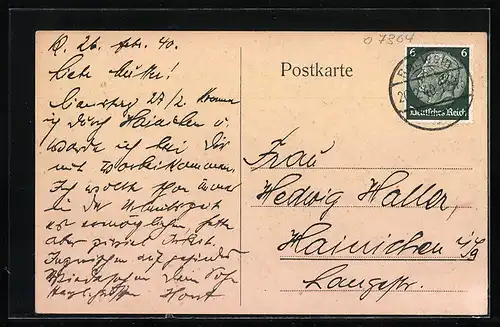 07364
R. 26. Feb. 40.
Liebe Mutti!
Samstag 27/2. komme
ich durch Hainichen u.
werde ich bei Dir
mit vorbeikommen.
Ich wollte schon immer
in der
es ermöglichen hatte
aber zuviel Arbeit.
Inzwischen auf gesundes
Wiedersehen Dein
Horst
Postkarte
6 6
Deutsches Reich
Frau
Hedwig Haller,
Hainichen i/Sa
Langestr.